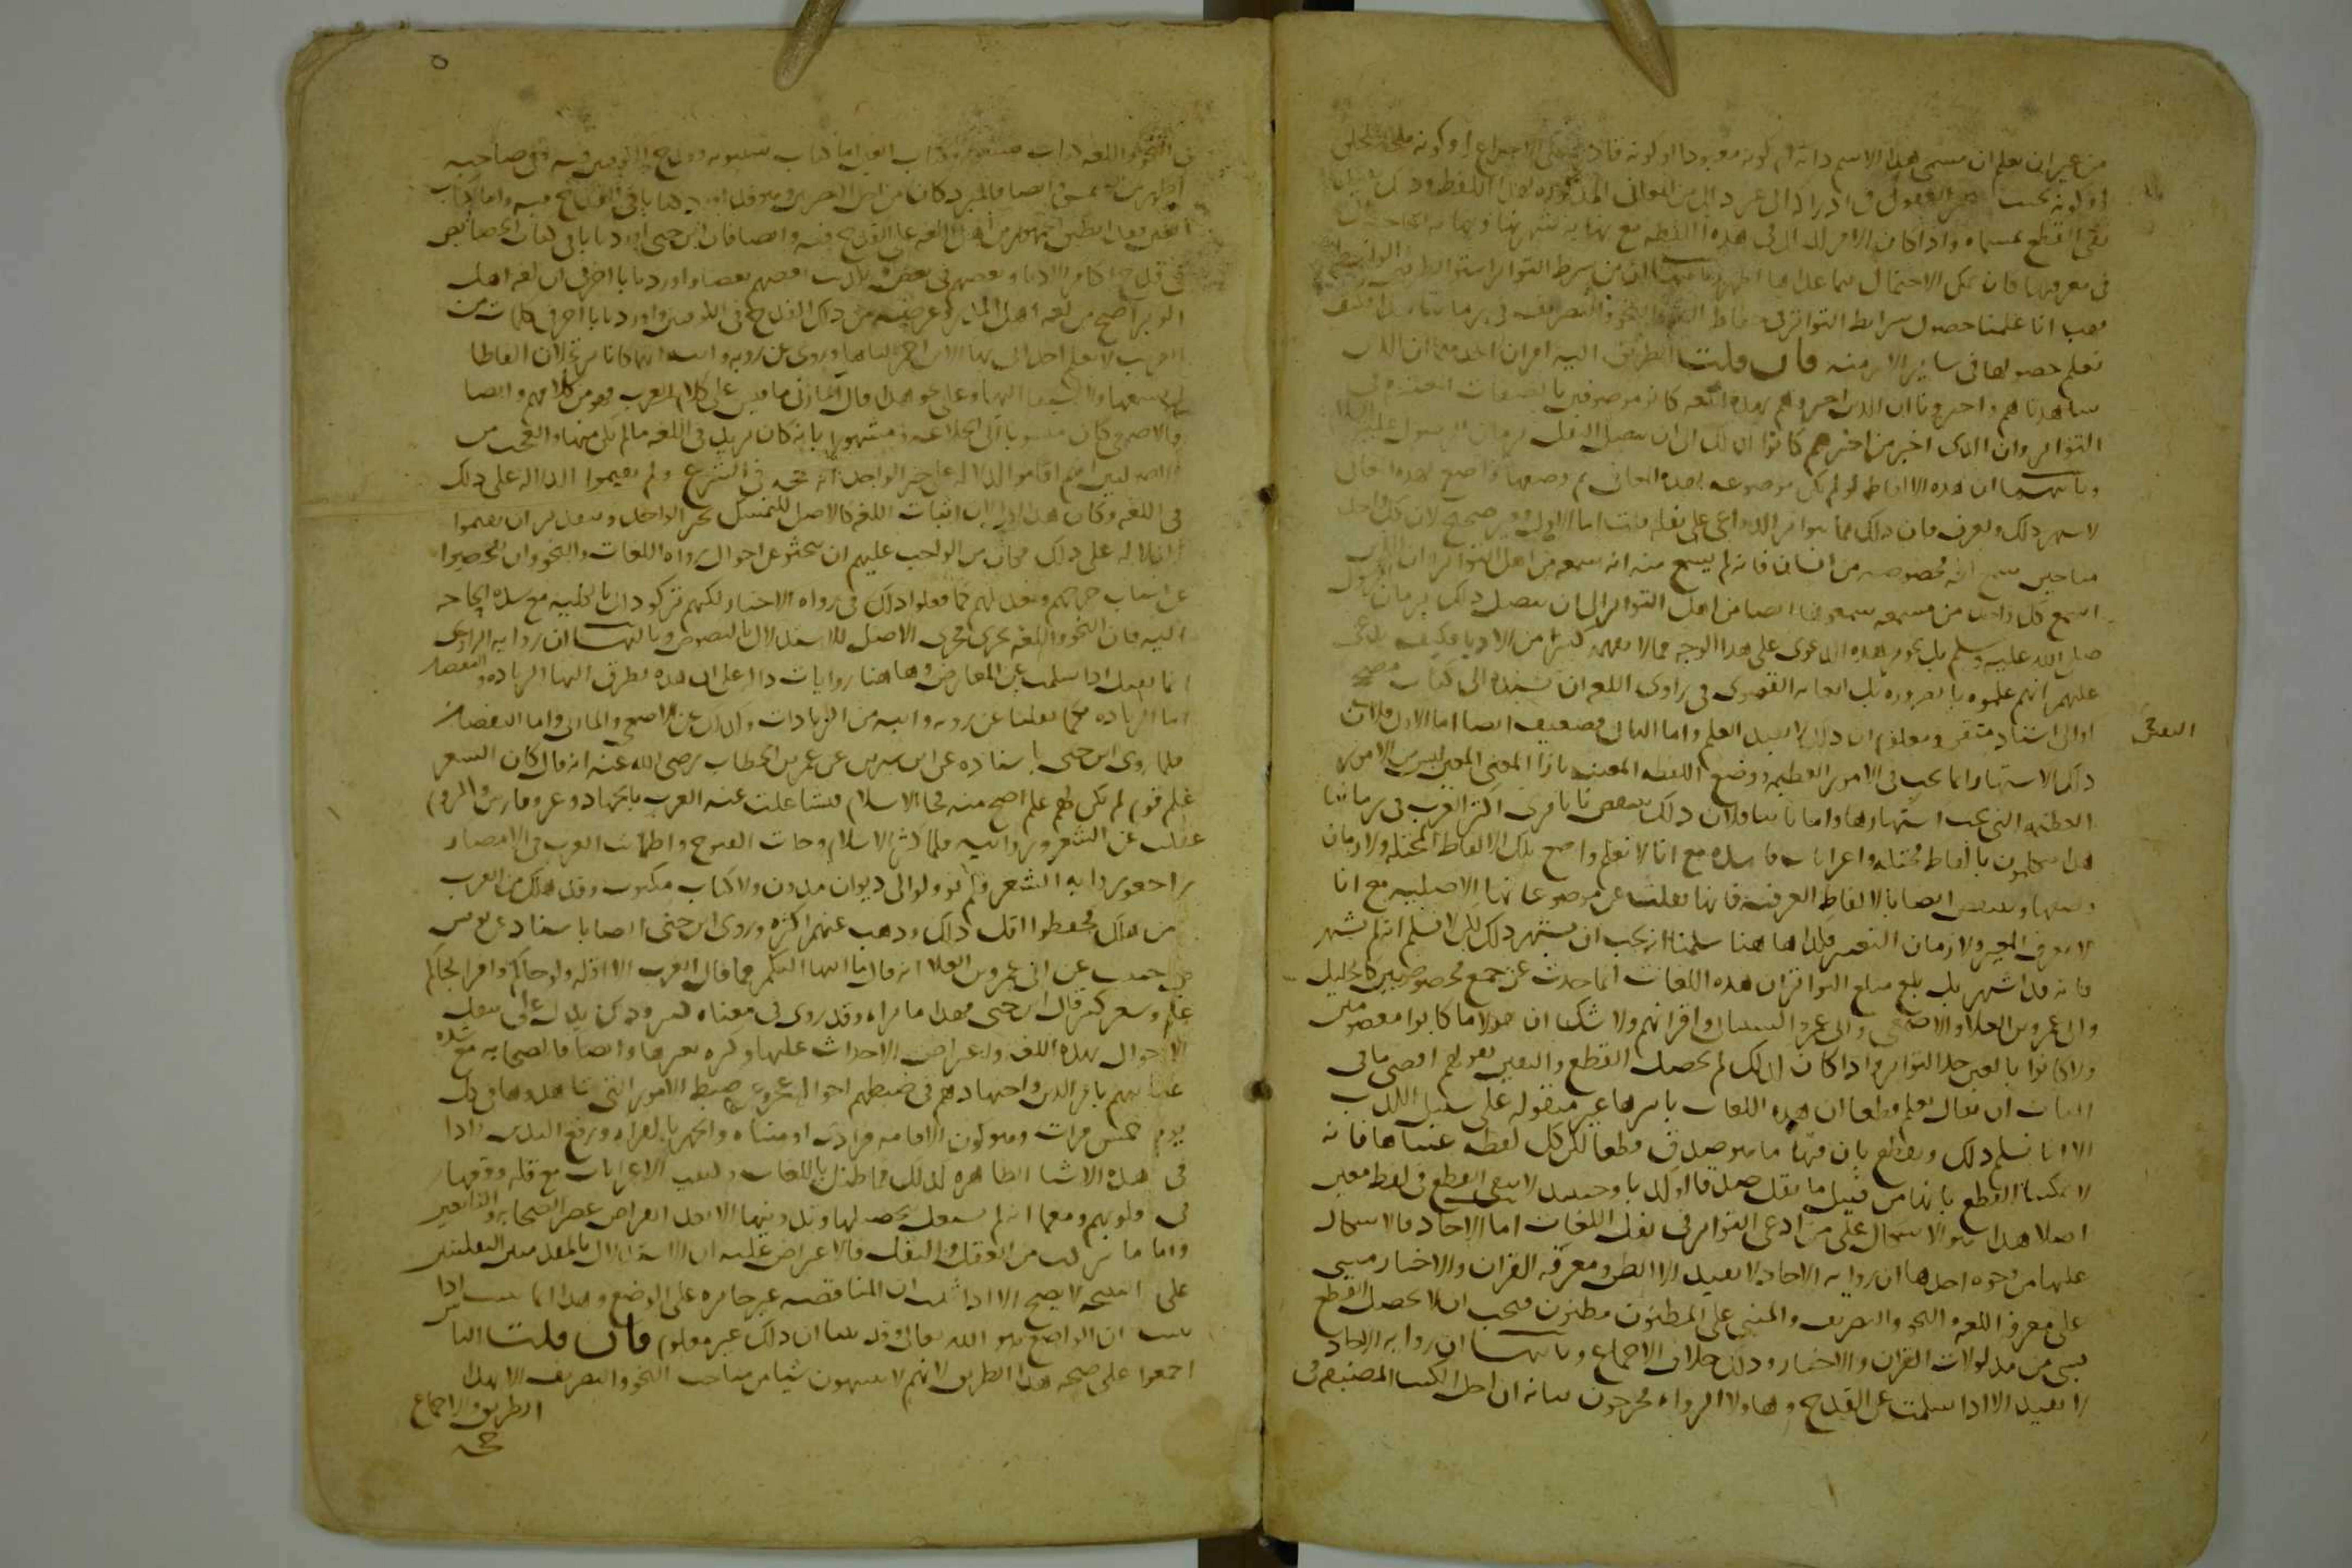 من غير ان نعلم ان مسمى هذا الاسم ذاته ام كونه معبودا او كونه قادرا على الاختراع او كونه ملجأ الخلق
او كونه بحيث تتحير العقول في ادراكه الى غير ذلك من المعاني المذكورة لهذا اللفظ وذلك
نفي القطع بمسماه واذا كان الامر كذلك في هذه اللفظه مع نهايه شهرتها ونهايه الحاجه
الى معرفتها كان تمكن الاحتمال فيما عداها اظهر وثانيها ان من شرط التواتر استواء الطرفين والواسطه
فهب انا علمنا حصول شرائط التواتر في حفاظ اللغه والنحو والتصريف في زماننا هذا فكيف
نعلم حصولها في سائر الازمنه فان قلت الطريق اليه امران احدهما ان الذين
شاهدناهم واخبرونا ان الذين اخبروهم بهذه اللغه كانوا موصوفين بالصفات المعتبره في
التواتر وان الذي اخبر من اخبرهم كانوا كذلك الى ان يتصل النقل بزمان الرسول عليه السلام
وثانيهما ان هذه الالفاظ لو لم تكن موضوعه لهذه المعاني ثم وضعها واضع لهذه المعاني
لاشتهر ذلك ولعرف فان ذلك مما تتوافر الدواعي على نقله قلت اما الاول فغير صحيح لان كل واحد
منا حين سمع لغه مخصوصه من انسان فانه لم يسمع منه انه سمعه من اهل التواتر وان الذين
اسمع كل واحد من مسمعه سمعوها ايضا من اهل التواتر الى ان يتصل ذلك بزمان الرسول
صلى الله عليه وسلم بل تحرير هذه الدعوى على هذا الوجه مما لا يفهمه كثير من الادبا فكيف يدعى
عليهم انهم علموه بالضروره بل الغايه القصوى في راوي اللغه ان يسنده الى كتاب مصحح
او الى استاذ متقن ومعلوم ان ذلك لا يفيد العلم واما الثاني فضعيف ايضا اما الاول فلان
اليقين
ذلك الاشتهار انما يجب في الامور العظيمه ووضع اللفظه المعينه بازا المعنى المعين ليس من الامور
العظيمه التي يجب اشتهارها واما ثانيا فلان ذلك ينتقض بانا نرى اكثر العرب في زماننا
هذا يتكلمون بالفاظ مختله واعرابات فاسده مع انا لا نعلم واضع تلك الالفاظ المختله ولا زمان
وضعها وينتقض ايضا بالالفاظ العرفيه فانها نقلت عن موضوعاتها الاصليه مع انا
لا نعرف المغير ولا زمان التغيير فكذا هاهنا سلمنا انه يجب ان يشتهر ذلك لكن لا نسلم انه لم يشتهر
فانه قد اشتهر بل بلغ مبلغ التواتر ان هذه اللغات انما اخذت عن جمع مخصوصين كالخليل
وابي عمرو بن العلا والاصمعي وابي عمرو الشيباني واقرانهم ولا شك ان هولاء ما كانوا معصومين
ولا كانوا بالغين حد التواتر واذا كان كذلك لم يحصل القطع واليقين بقولهم اقصى ما في
الباب ان يقال نعلم قطعا ان هذه اللغات باسرها غير منقوله على سبيل الكذب
الا انا نسلم ذلك ونقطع بان فيها ما هو صدق قطعا لكن كل لفظه عيناها فانه
لا يمكننا القطع بانها من قبيل ما نقل صدقا او كذبا وحينئذ لا يبقى القطع في لفظ معين
اصلا هذا هو الاشكال على من ادعى التواتر في نقل اللغات اما الاحاد فالاشكال
عليها من وجوه احدها ان روايه الاحاد لا تفيد الا الظن ومعرفه القران والاخبار مبنيه
على معرفه اللغه والنحو والتصريف والمبنى على المظنون مظنون فيجب ان لا يحصل القطع
بشي من مدلولات القران والاخبار وذلك خلاف الاجماع وثانيها ان روايه الاحاد
لا تفيد الا اذا سلمت عن القدح وهاولا الرواه مجرحون بيانه ان اجل الكتب المصنفه في
٥
في النحو واللغه كتاب سيبويه وكتاب العين اما كتاب سيبويه فقدح الكوفيين فيه وفي صاحبه
اظهر من الشمس وايضا فالمبرد كان من اجل البصريين وهو قد اورد كتابا في القدح فيه واما كتاب
العين فقد اطبق الجمهور من اهل اللغه على القدح فيه وايضا فان ابن جني اورد بابا في كتاب الخصائص
في قدح اكابر الادبا بعضهم في بعض وتكذيب بعضهم بعضا واورد بابا اخر في ان لغه اهل
الوبر اصح من لغه اهل المدر وغرضه من ذلك القدح في الكوفيين واورد بابا اخر في كلمات من
الغريب لا يعلم احد اتى بها الا ابن احمر الباهلي وروي عن رؤبه وابيه انهما كانا يرتجلان الفاظا
لم يسمعاها ولا سبقا اليها وعلى نحو هذا قال المازني ما قيس على كلام العرب فهو من كلامهم وايضا
فالاصمعي كان منسوبا الى الخلاعه ومشهورا بانه كان يزيد في اللغه ما لم يكن منها والعجب من
الاصوليين انهم اقاموا الدلاله على خبر الواحد انه حجه في الشرع ولم يقيموا الدلاله على ذلك
في اللغه وكان هذا اولى لان اثبات اللغه كالاصل للتمسك بخبر الواحد وبتقدير ان يقيموا
الدلاله على ذلك فكان من الواجب عليهم ان يبحثوا عن احوال رواه اللغات والنحو وان يفحصوا
عن اسباب جرحهم وتعديلهم كما فعلوا ذلك في رواه الاخبار لكنهم تركوا ذلك بالكليه مع شده الحاجه
اليه فان النحو واللغه يجري مجرى الاصل للاستدلال بالنصوص وثالثها ان روايه الراوي
انما تقبل اذا سلمت عن المعارض وهاهنا روايات داله على ان هذه تطرق اليها الزياده والنقصان
اما الزياده فكما نقلنا عن رؤبه وابيه من الزيادات وكذلك عن الاصمعي والمازني واما النقصان
فلما روى ابن جني باسناده عن ابن سيرين عن عمر بن الخطاب رضي الله عنه انه قال كان الشعر
علم قوم لم يكن لهم علم اصح منه فجا الاسلام فتشاغلت عنه العرب بالجهاد وغزو فارس والروم
غفلت عن الشعر وروايته فلما كثر الاسلام وجات الفتوح واطمانت العرب في الامصار
راجعو روايه الشعر فلم يؤولوا الى ديوان مدون ولا كتاب مكتوب وقد هلك من العرب
من هلك فحفظوا اقل ذلك وذهب عنهم اكثره وروى ابن جني ايضا باسناده عن يونس
بن حبيب عن ابي عمرو بن العلا انه قال ما انتها اليكم مما قال العرب الا اقله ولو جاكم وافرا لجاكم
علم وشعر كثير قال ابن جني فهذا ما تراه وقد روي في معناه كثير وذلك يدل على تنقل
الاحوال بهذه اللغه واعتراض الاحداث عليها وكثره تغيرها وايضا فالصحابه مع شده
عنايتهم بامر الدين واجتهادهم في ضبطهم احواله عجزوا عن ضبط الامور التي شاهدوها في كل
يوم خمس مرات وهو كون الاقامه فرادى او مثناه والجهر بالقراه ورفع اليدين فاذا
في هذه الاشيا الظاهره كذلك فما ظنك باللغات وكيفيه الاعرابات مع قله وقعها
في قلوبهم ومع انه لم يشتغل بتحصيلها وتدوينها الا بعد انقراض عصر الصحابه والتابعين
واما ما تركب من العقل والنقل فالاعتراض عليه ان الاستدلال بالمقدمتين النقليتين
على النتيجه لا يصح الا اذا ثبت ان المناقضه غير جائزه على الواضع وهذا انما يثبت اذا
ثبت ان الواضع هو الله تعالى وقد بينا ان ذلك غير معلوم فان قلت الناس
اجمعوا على صحه هذا الطريق لانهم لا يثبتون شيا من مباحث النحو والتصريف الا بهذا
الطريق والاجماع
حجه